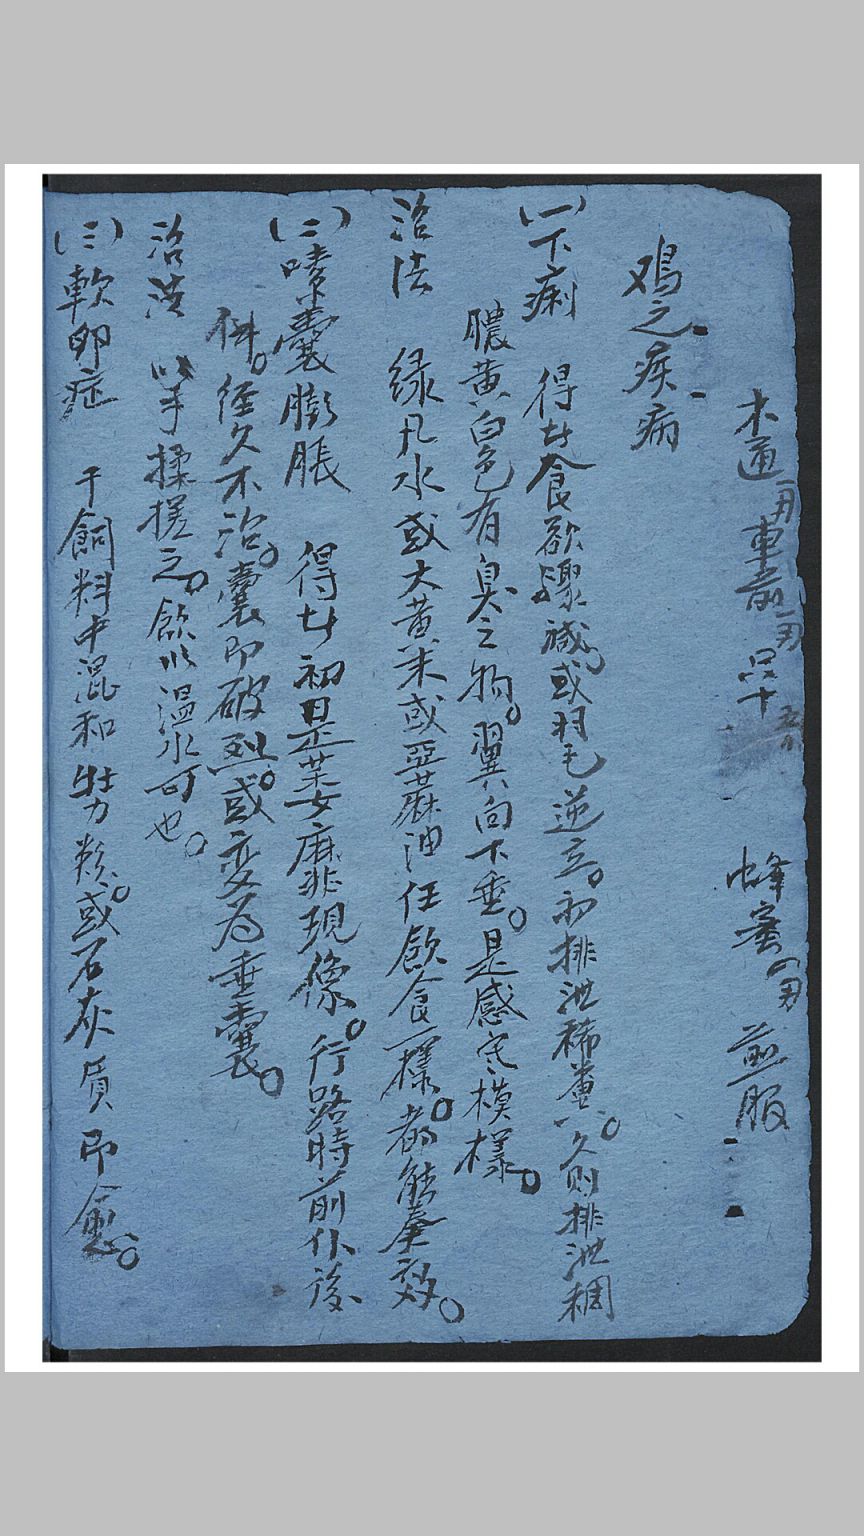 木通一两 車前一两 只十 蜂蜜一两 煎服
鸡之疾病
(一)下痢 得廿食欲驟减。或羽毛逆立。初排泄稀糞。久则排泄稠
膿黄白色有臭之物。翼向下垂。是感寒模樣。
治法 绿凡水或大黄末或亞蔴油任飲食一樣。都能奏效。
(二)嗉囊膨脹 得廿初日是萎靡現像。行路時前仆後
倂。経久不治。囊即破烈。或变为垂囊。
治法 以手揉搓之。飲以温水可也。
(三)軟卵症 于飼料中混和牡力类。或石灰質即愈。